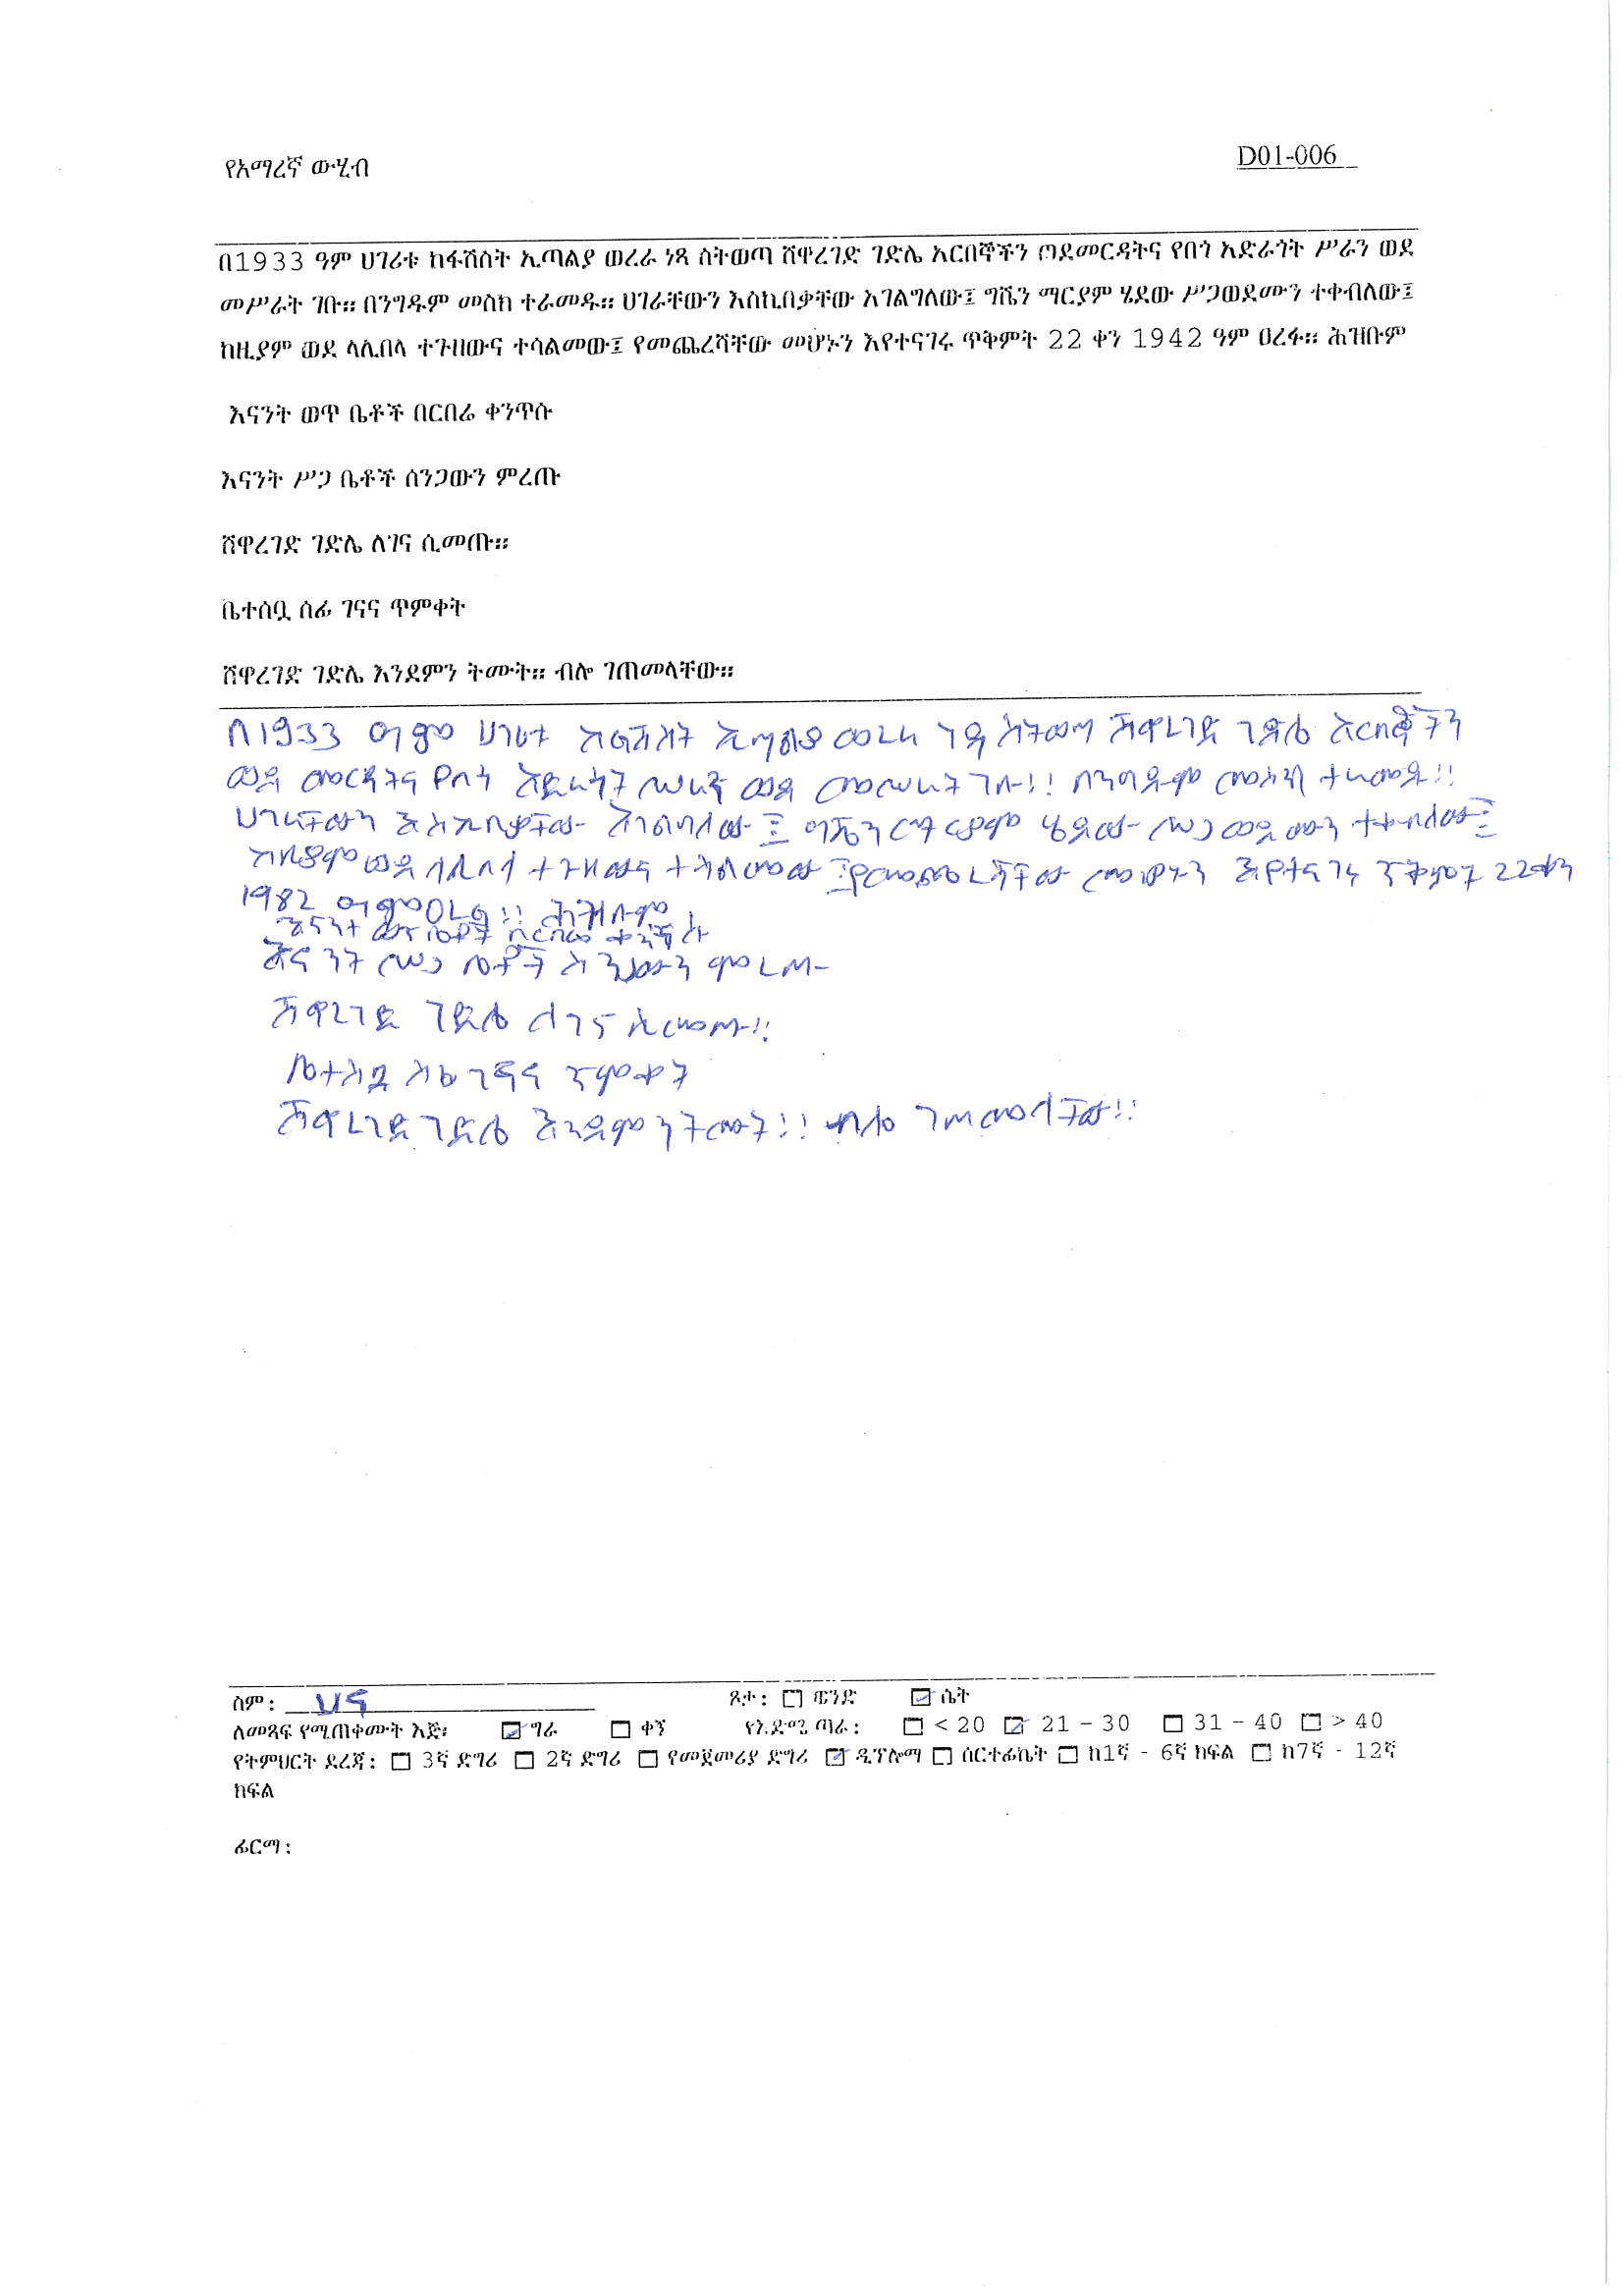 የአማረኛ ውሂብ
D01-006
በ1933 ዓም ሀገሪቱ ከፋሽስት ኢጣልያ ወረራ ነጻ ስትወጣ ሸዋረገድ ገድሌ አርበኞችን ወደመርዳትና የበጎ አድራጎት ሥራን ወደ
መሥራት ገቡ። በንግዱም መስክ ተራመዱ። ሀገራቸውን እስኪበቃቸው አገልግለው፤ ግሼን ማርያም ሄደው ሥጋወደሙን ተቀብለው፤
ከዚያም ወደ ላሊበላ ተጉዘውና ተሳልመው፤ የመጨረሻቸው መሆኑን እየተናገሩ ጥቅምት 22 ቀን 1942 ዓም ዐረፉ። ሕዝቡም
እናንት ወጥ ቤቶች በርበሬ ቀንጥሱ
እናንት ሥጋ ቤቶች ሰንጋውን ምረጡ
ሸዋረገድ ገድሌ ለገና ሲመጡ።
ቤተሰቧ ሰፊ ገናና ጥምቀት
ሸዋረገድ ገድሌ እንደምን ትሙት። ብሎ ገጠመላቸው።
በ1933 ዓም ሀገሪቱ ከፋሽስት ኢጣልያ ወረራ ነፃ ስትወጣ ሸዋረገድ ገድሌ አርበኞችን
ወደ መርዳትና የበጎ አድራጎት ሥራን ወደ መሥራት ገቡ።። በንግዱም መስክ ተራመዱ።።
ሀገራቸውን እስኪበቃቸው አገልግለው፤ ግሼን ማርያም ሄደው ሥጋ ወደሙን ተቀብለው፤
ከዚያም ወደ ላሊበላ ተጉዘውና ተሳልመው ፤የመጨረሻቸው መሆኑን እየተናገሩ ጥቅምት 22ቀን
1982 ዓም ዐረፉ።። ሕዝቡም
እናንት ወጥ ቤቶች በርበሬ ቀንጥሱ
እናንት ሥጋ ቤቶች ሰንጋውን ምረጡ
ሸዋረገድ ገድሌ ለገና ሲመጡ።።
ቤተሰቧ ሰፊ ገናና ጥምቀት
ሸዋረገድ ገድሌ እንደምን ትሙት።። ብሎ ገጠመላቸው።።
ስም: ሀና ጾታ: ወንድ ሴት
ለመጻፍ የሚጠቀሙት እጅ፡ ግራ ቀኝ የእድሜ ጣራ: < 20 21 – 30 31 – 40 > 40
የትምህርት ደረጃ: 3ኛ ድግሪ 2ኛ ድግሪ የመጀመሪያ ድግሪ ዲፕሎማ ሰርተፊኬት ከ1ኛ - 6ኛ ክፍል ከ7ኛ - 12ኛ
ክፍል
ፊርማ: